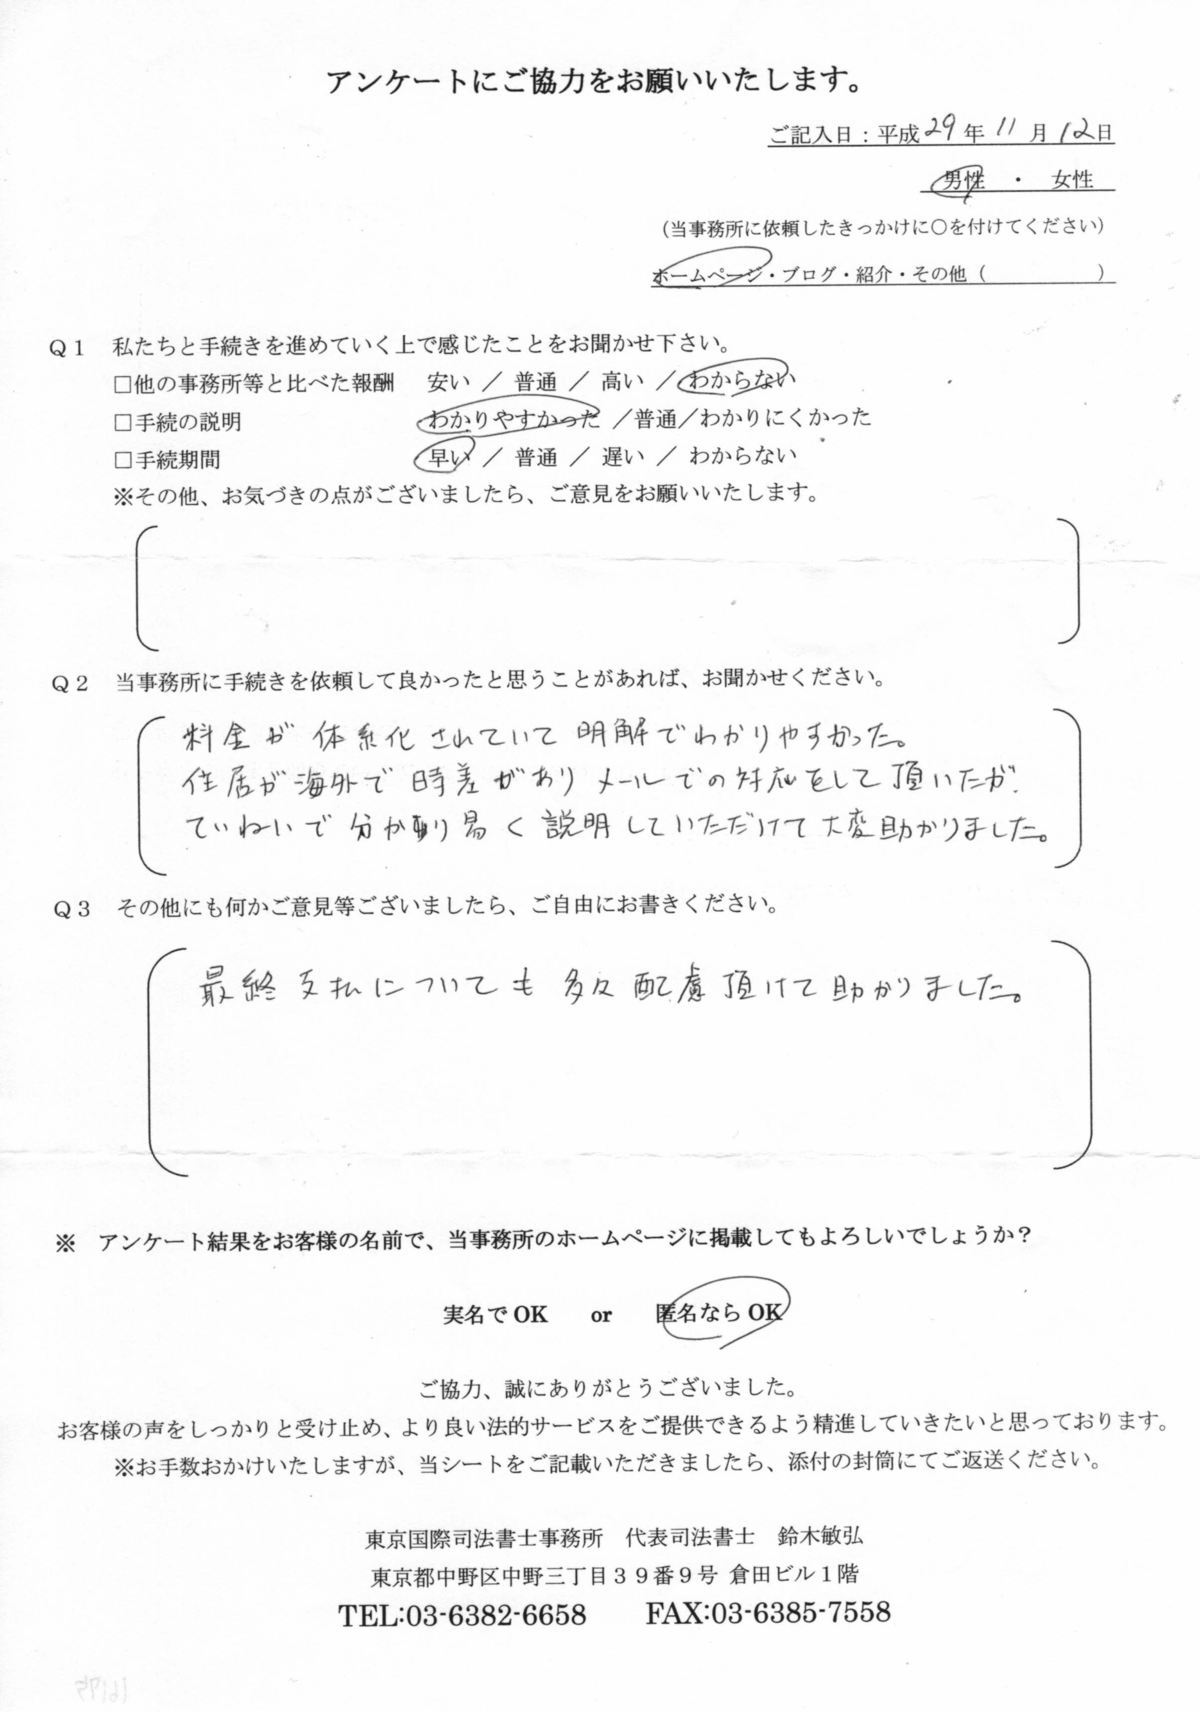 アンケートにご協力をお願いいたします。
ご記入日：平成29年11月12日
男性　・　女性
（当事務所に依頼したきっかけに○を付けてください）
ホームページ・ブログ・紹介・その他（　　　　　　）
Ｑ１　私たちと手続きを進めていく上で感じたことをお聞かせ下さい。
□他の事務所等と比べた報酬　安い ／ 普通 ／ 高い ／わからない
□手続の説明　わかりやすかった ／普通／わかりにくかった
□手続期間　早い ／ 普通 ／ 遅い ／ わからない
※その他、お気づきの点がございましたら、ご意見をお願いいたします。
Ｑ２　当事務所に手続きを依頼して良かったと思うことがあれば、お聞かせください。
料金が体系化されていて明解でわかりやすかった。
住居が海外で時差がありメールでの対応をして頂いたが、
ていねいで分かり易く説明していただけて大変助かりました。
Ｑ３　その他にも何かご意見等ございましたら、ご自由にお書きください。
最終支払についても多々配慮頂けて助かりました。
※　アンケート結果をお客様の名前で、当事務所のホームページに掲載してもよろしいでしょうか？
実名でOK　　or　　匿名ならOK
ご協力、誠にありがとうございました。
お客様の声をしっかりと受け止め、より良い法的サービスをご提供できるよう精進していきたいと思っております。
※お手数おかけいたしますが、当シートをご記載いただきましたら、添付の封筒にてご返送ください。
東京国際司法書士事務所　代表司法書士　鈴木敏弘
東京都中野区中野三丁目３９番９号 倉田ビル１階
TEL:03-6382-6658　　FAX:03-6385-7558